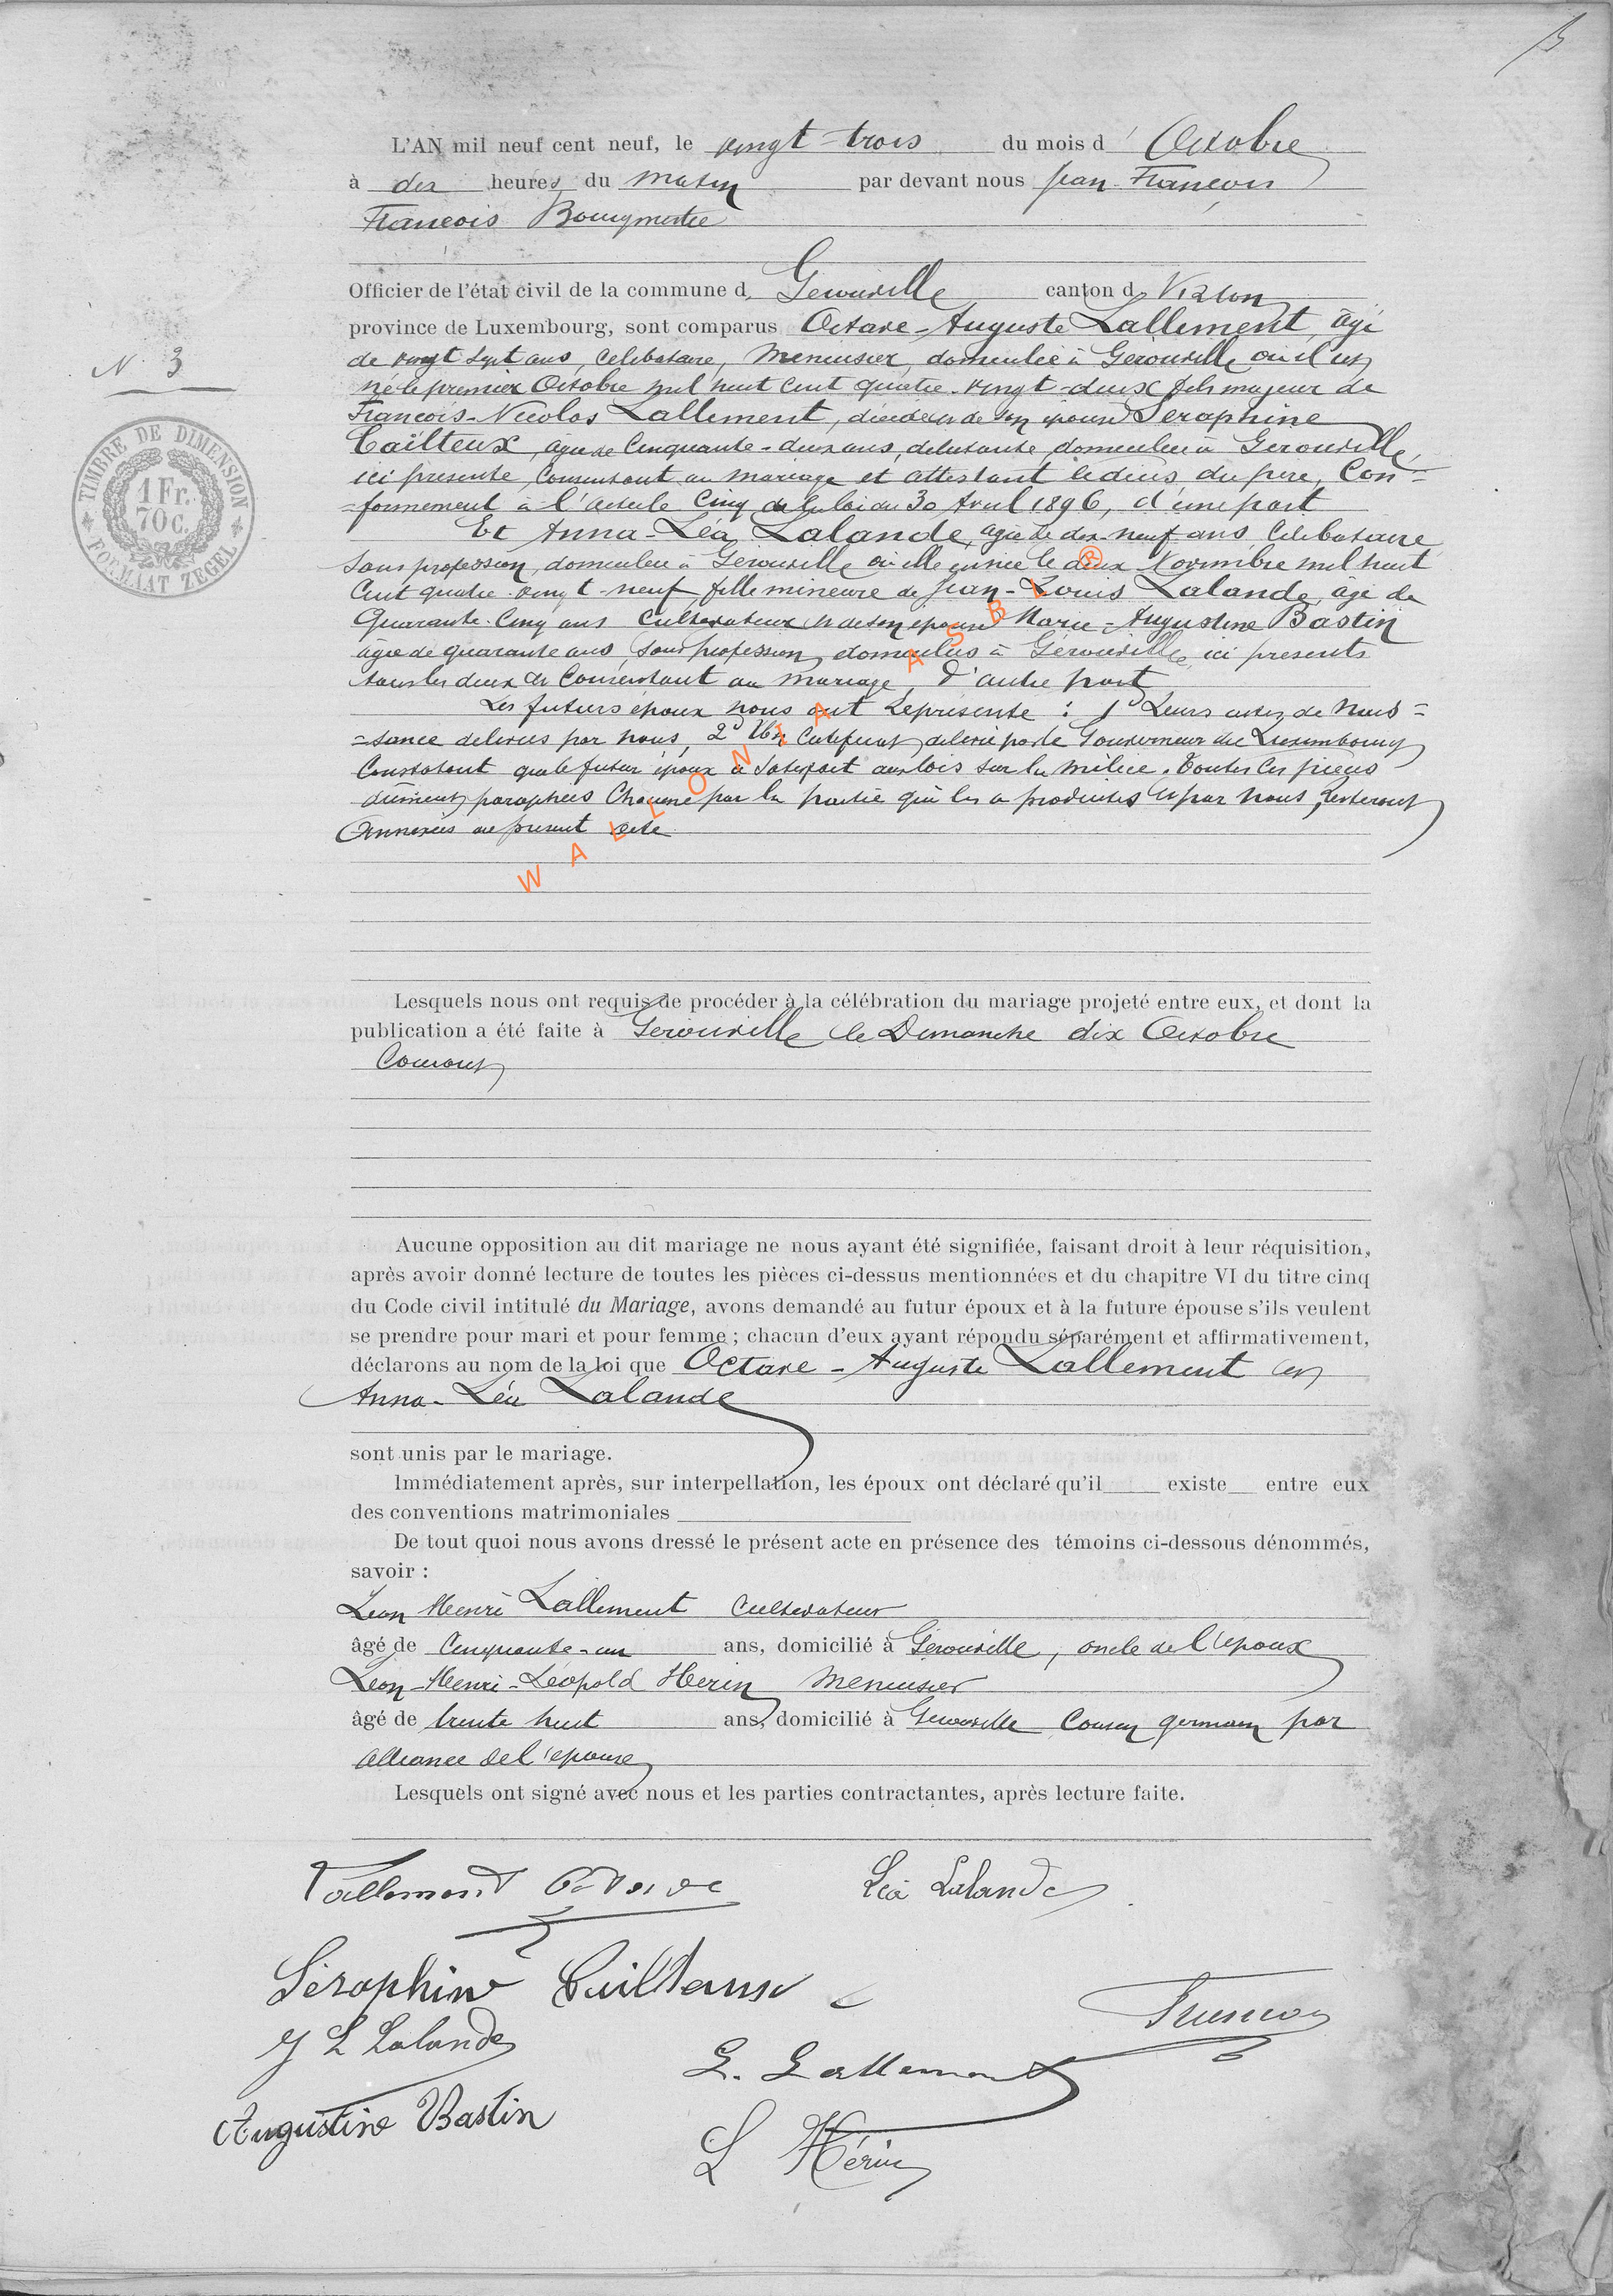 L'AN mil neuf cent neuf, le vingt-trois du mois d' Octobre
à dix heures du matin par devant nous Jean François
François Bourgmestre
Officier de l'état civil de la commune d Gérouville canton d Virton
N. 3
province de Luxembourg, sont comparus Octave-Auguste Lallement, âgé
de vingt sept ans, célibataire, Menuisier, domicilié à Gérouville où il est
né le premier Octobre mil huit cent quatre-vingt-deux fils majeur de
François-Nicolas Lallement, décédé et de son épouse Seraphine
Cailteux, âgée de Cinquante-deux ans, débitante, domiciliée à Gerouville,
ici présente, Consentant au mariage et attestant le décès du père, Con=
=formément à l'article Cinq de la loi du 30 Avril 1896, d'une part
Et Anna-Léa Lalande, âgée de dix-neuf ans Célibataire
Sans profession, domiciliée à Gérouville où elle est née le deux Novembre mil huit
Cent quatre-vingt-neuf, fille mineure de Jean-Louis Lalande, âgé de
Quarante-Cinq ans Cultivateur et de son épouse Marie-Augustine Bastin
âgée de quarante ans, Sans profession, domiciliés à Gérouville, ici présents
tous les deux et Consentant au mariage, d'autre part
Les futurs époux nous ont représenté : 1° Leurs actes de Nais=
=sance délivrés par nous, 2° Un Certificat délivré par le Gouverneur du Luxembourg
Constatant que le futur époux a satisfait aux lois sur la milice. Toutes ces pièces
dûment paraphées Chacune par la partie qui les a produites et par nous, resteront
Annexées au présent acte
TIMBRE DE DIMENSION
1 Fr.
70 c.
FORMAAT ZEGEL
WALLONIA ASBL ®
Lesquels nous ont requis de procéder à la célébration du mariage projeté entre eux, et dont la
publication a été faite à Gerouville le Dimanche dix Octobre
Courant
Aucune opposition au dit mariage ne nous ayant été signifiée, faisant droit à leur réquisition,
après avoir donné lecture de toutes les pièces ci-dessus mentionnées et du chapitre VI du titre cinq
du Code civil intitulé du Mariage, avons demandé au futur époux et à la future épouse s'ils veulent
se prendre pour mari et pour femme ; chacun d'eux ayant répondu séparément et affirmativement,
déclarons au nom de la loi que Octave-Auguste Lallement et
Anna-Léa Lalande
sont unis par le mariage.
Immédiatement après, sur interpellation, les époux ont déclaré qu'il existe entre eux
des conventions matrimoniales
De tout quoi nous avons dressé le présent acte en présence des témoins ci-dessous dénommés,
savoir :
Léon Henri Lallement Cultivateur
âgé de Cinquante-un ans, domicilié à Gérouville, oncle de l'époux
Léon-Henri-Léopold Herin Menuisier
âgé de trente huit ans, domicilié à Gerouville Cousin germain par
alliance de l'épouse
Lesquels ont signé avec nous et les parties contractantes, après lecture faite.
Lallement Octave Léa Lalande
Séraphine Cailteux
J L Lalande François
L. Lallement
Augustine Bastin
L Hérin